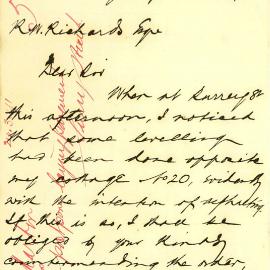 R.W. Richards Esqr
Dear Sir
When at Surrey St
this afternoon, I noticed
that some levelling
has been done opposite
my cottage No 20, evidently
with the intention of asphalting.
If this is so, I shall be
obliged by your kindly
countermanding the order,